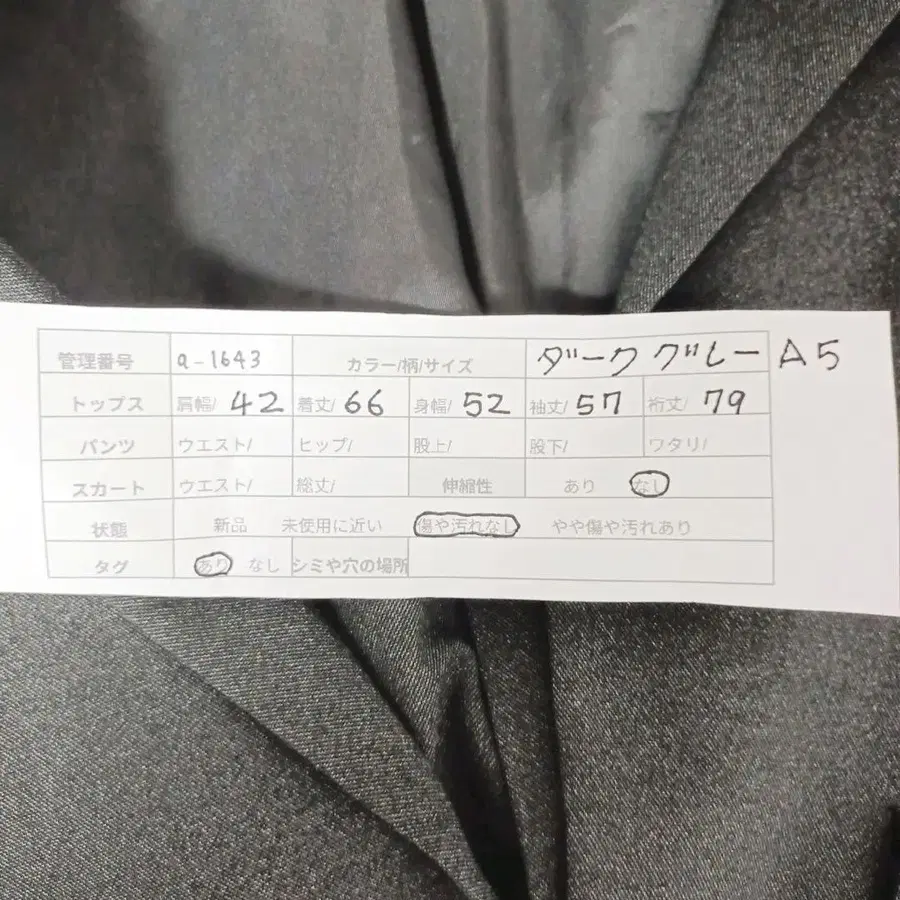 管理番号 a-1643 カラー/柄/サイズ ダークグレー A5
トップス 肩幅/ 42 着丈/ 66 身幅/ 52 袖丈/ 57 裄丈/ 79
パンツ ウエスト/ ヒップ/ 股上/ 股下/ ワタリ/
スカート ウエスト/ 総丈/ 伸縮性 あり なし
状態 新品 未使用に近い 傷や汚れなし やや傷や汚れあり
タグ あり なし シミや穴の場所